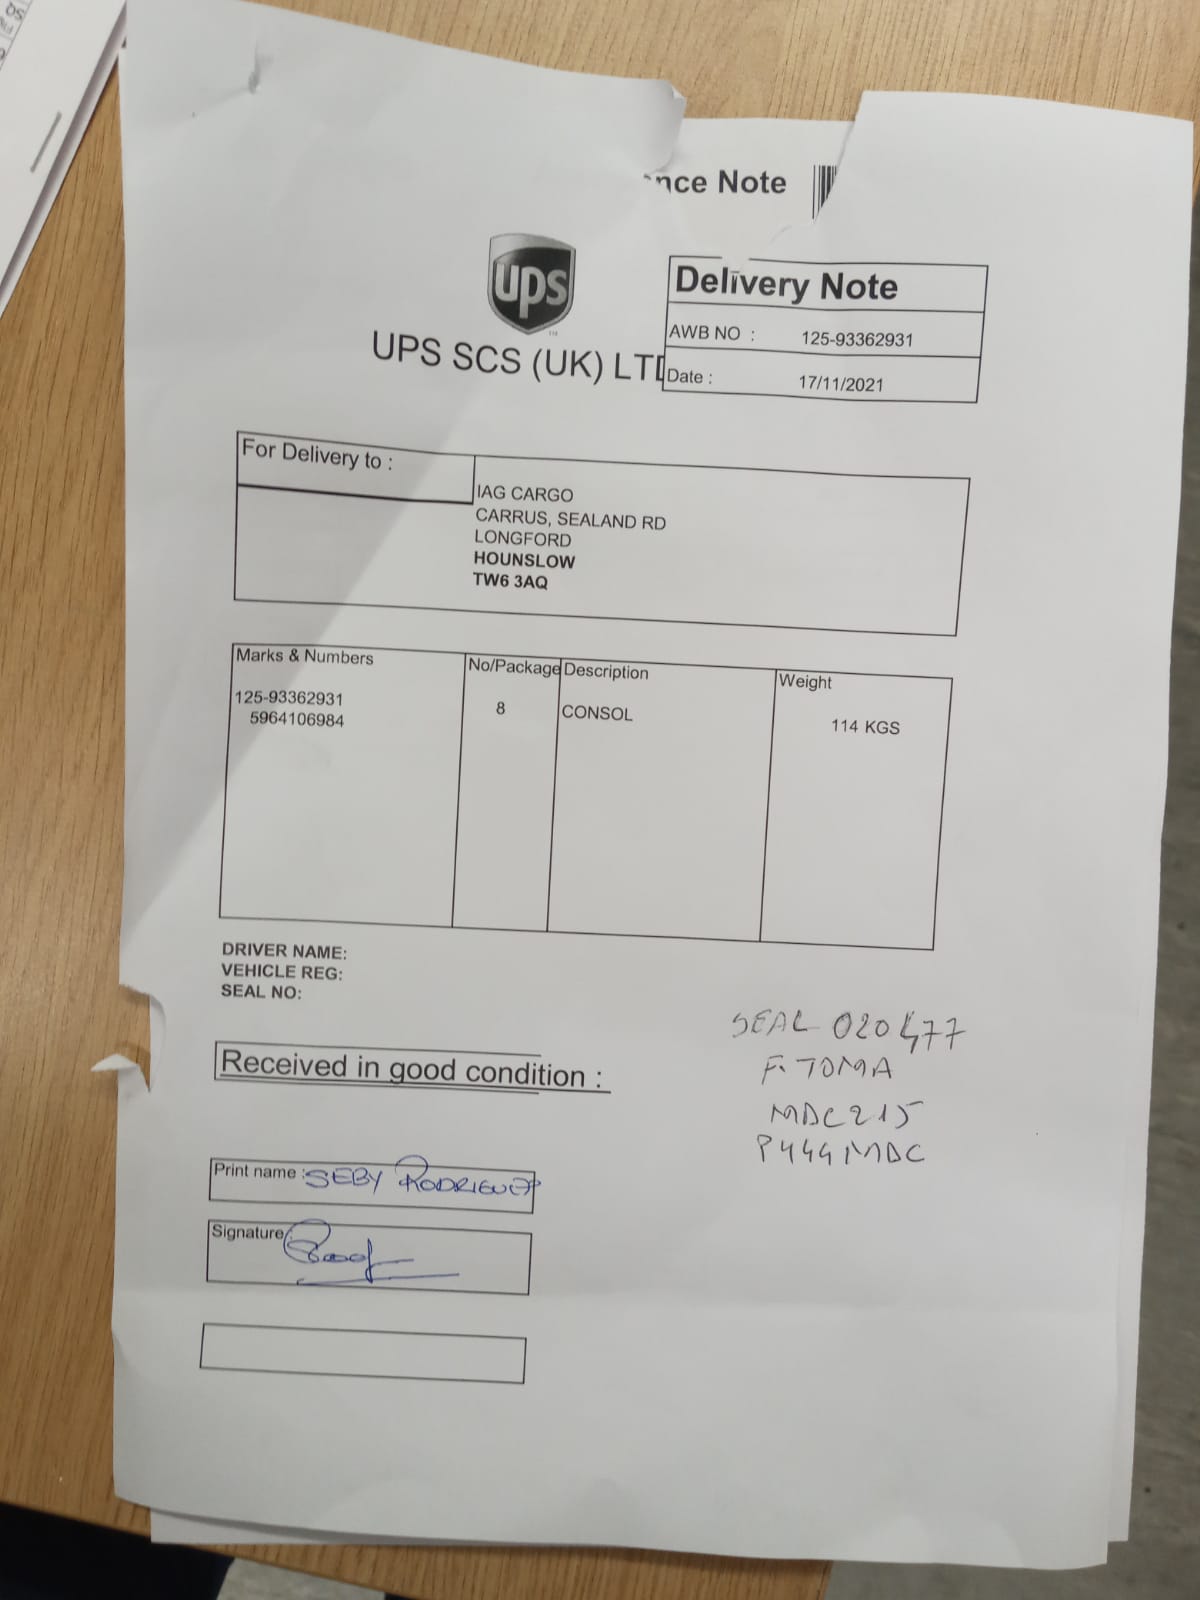 nce Note
ups
UPS SCS (UK) LTD
Delivery Note
AWB NO : 125-93362931
Date : 17/11/2021
For Delivery to :
IAG CARGO
CARRUS, SEALAND RD
LONGFORD
HOUNSLOW
TW6 3AQ
Marks & Numbers No/Package Description Weight
125-93362931 8 CONSOL 114 KGS
5964106984
DRIVER NAME:
VEHICLE REG:
SEAL NO:
SEAL 020477
F. TOMA
MDC215
P444MDC
Received in good condition :
Print name : SEBY RODRIGUEZ
Signature